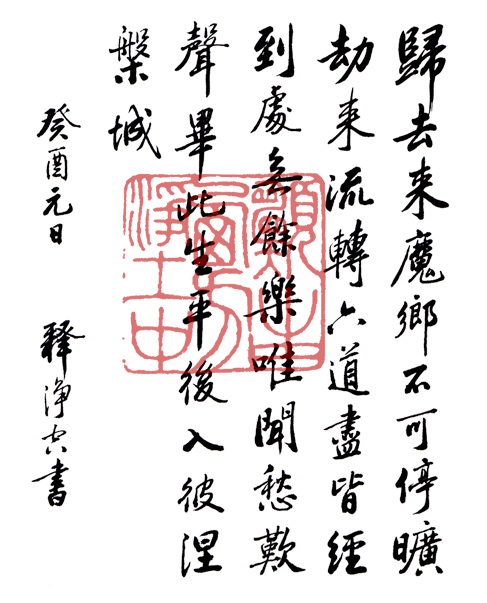 歸去来魔鄉不可停曠
劫来流轉六道盡皆經
到處無餘樂唯聞愁歎
聲畢此生平後入彼涅
槃城
癸酉元日 釋淨空書
願生
西方
淨土中